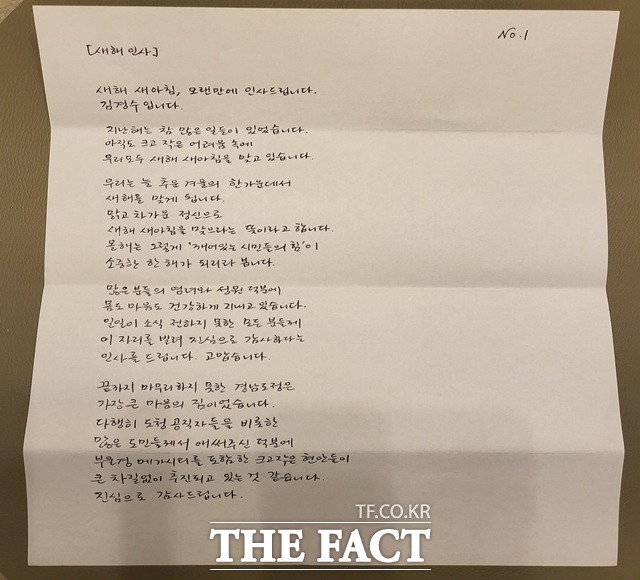 No.1
[새해 인사]
새해 새아침, 오랜만에 인사드립니다.
김경수 입니다.
지난해는 참 많은 일들이 있었습니다.
아직도 크고 작은 어려움 속에
우리모두 새해 새아침을 맞고 있습니다.
우리는 늘 추운 겨울의 한가운데서
새해를 맞게 됩니다.
맑고 차가운 정신으로
새해 새아침을 맞으라는 뜻이라고 합니다.
올해는 그렇게 '깨어있는 시민들의 힘'이
소중한 한 해가 되리라 봅니다.
많은 분들의 염려와 성원 덕분에
몸도 마음도 건강하게 지내고 있습니다.
일일이 소식 전하지 못한 모든 분들께
이 자리를 빌려 진심으로 감사하다는
인사를 드립니다. 고맙습니다.
끝까지 마무리하지 못한 경남도정은
가장 큰 마음의 짐이었습니다.
다행히 도청 공직자들을 비롯한
많은 도민들께서 애써주신 덕분에
부울경 메가시티를 포함한 크고작은 현안들이
큰 차질없이 추진되고 있는 것 같습니다.
진심으로 감사드립니다.
TF.CO.KR
THE FACT